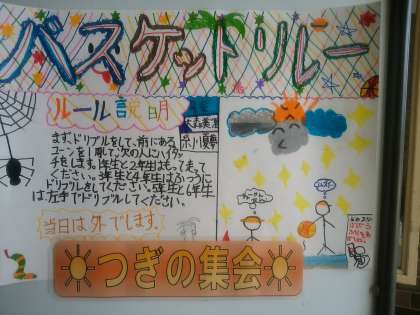 バスケットリレー
ルール説明
まず、ドリブルをして、前にある
コーンを回って次の人にハイタッ
チをします。1年生と2年生はもって走って
ください。3年生と4年生はふつうに
ドリブルをしてください。5年生と6年生
は左手でドリブルしてください。
当日は外でします。
つぎの集会